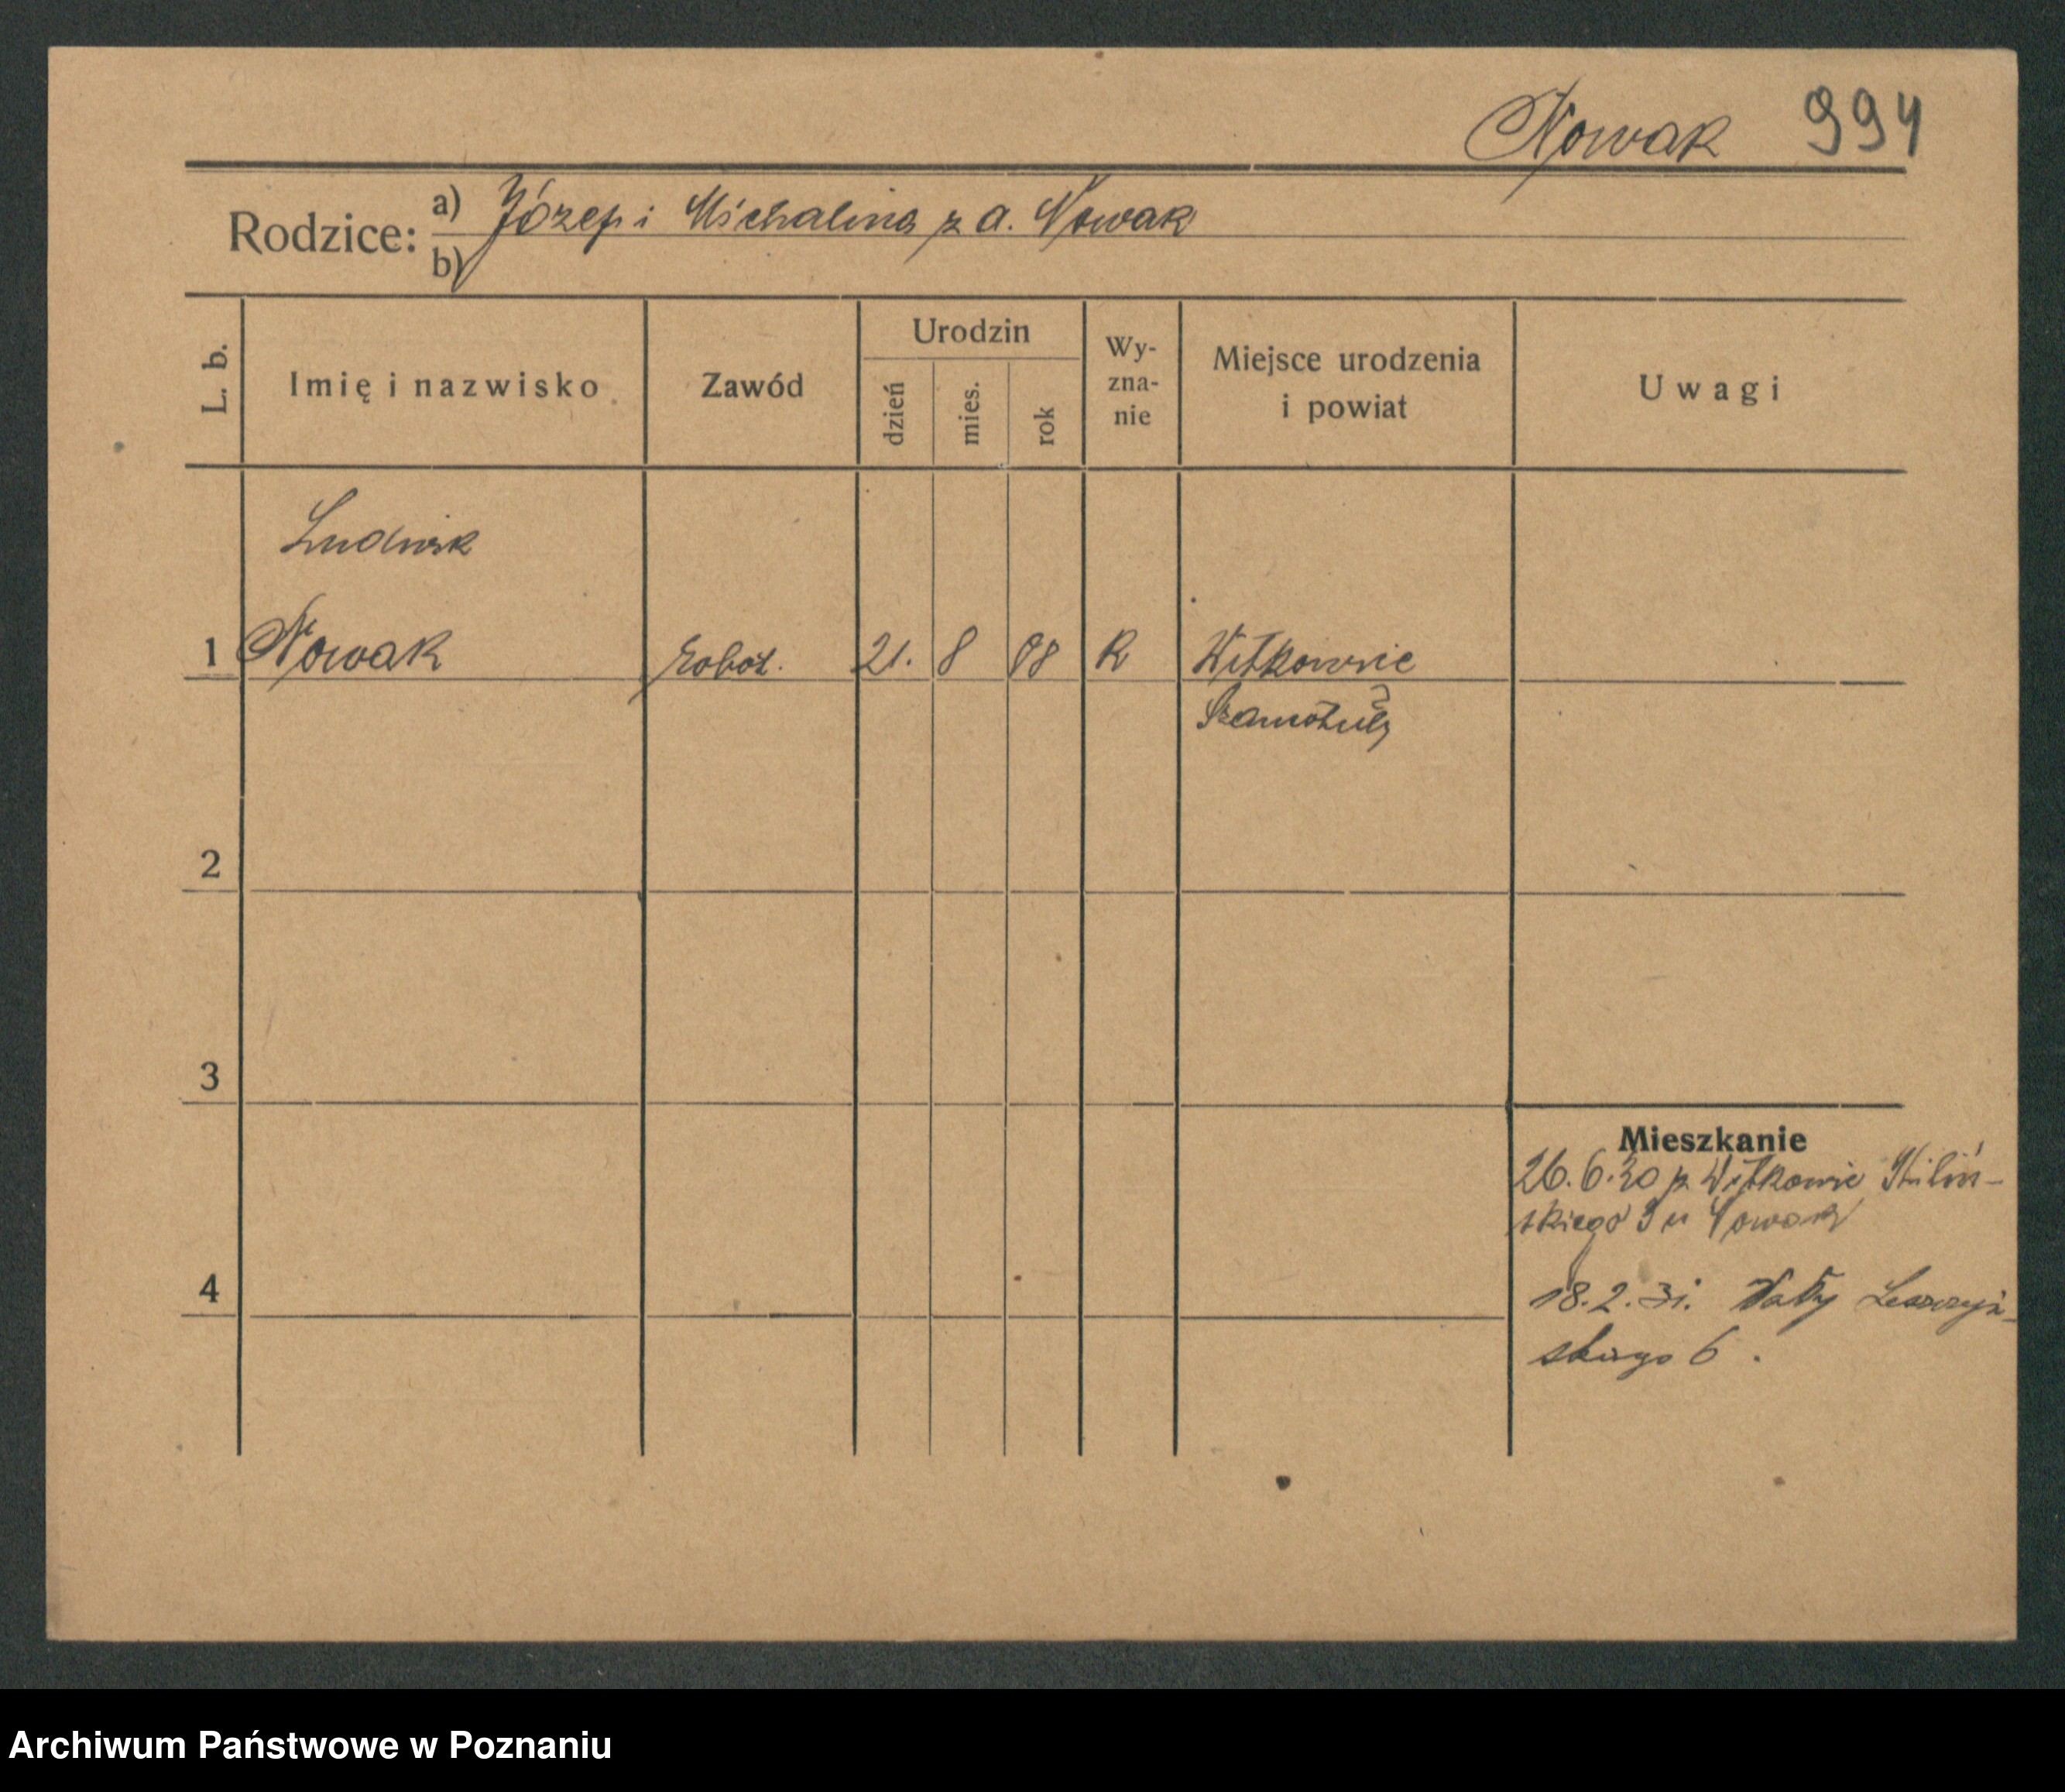 Nowak 994
Rodzice: a) Józef i Michalina z d. Nowak
b)
L. b. Imię i nazwisko Zawód Urodzin dzień mies. rok Wy-zna-nie Miejsce urodzenia i powiat Uwagi
Ludwik
1 Nowak robot. 21. 8 08 R Witkowice
Szamotuły
2
3
Mieszkanie
26.6.30 z Witkowic Kiliń-
skiego 3 u Nowak
4
18.2.31. Wały Leszczyń-
skiego 6.
Archiwum Państwowe w Poznaniu